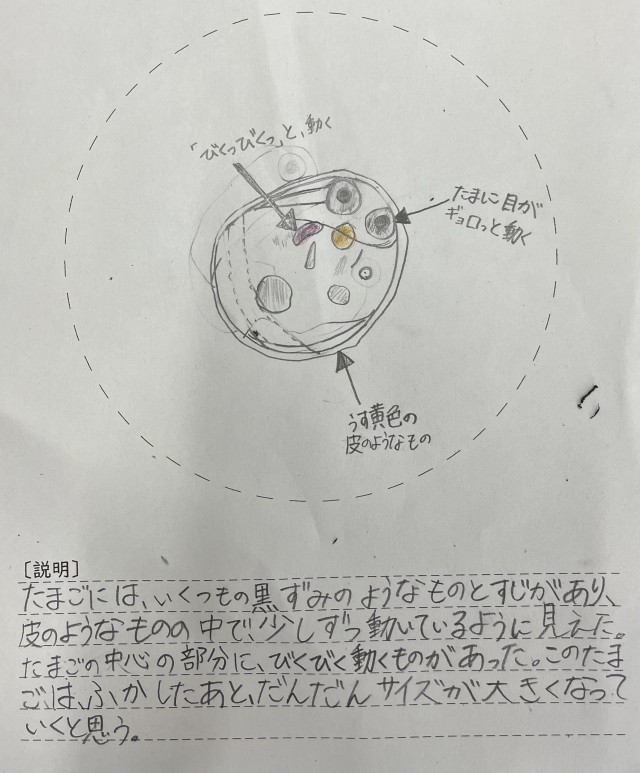 「びくっびくっ」と、動く
たまに目が
ギョロっと動く
うす黄色の
皮のようなもの
〔説明〕
たまごには、いくつもの黒ずみのようなものとすじがあり、
皮のようなものの中で、少しずつ動いているように見えた。
たまごの中心の部分に、びくびく動くものがあった。このたま
ごは、ふかしたあと、だんだんサイズが大きくなって
いくと思う。